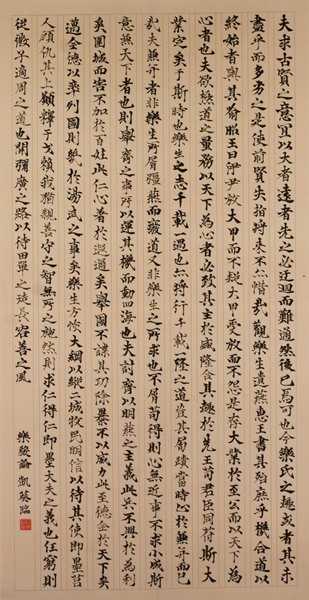 夫求古賢之意宜以大者遠者先之必迂迴而難通然後已焉可也今樂氏之趣或者其未
盡乎而多劣之是使前賢失指於將來不亦惜哉觀樂生遺燕惠王書其殆庶乎機合道以
終始者與其喻昭王曰伊尹放大甲而不疑大甲受放而不怨是存大業於至公而以天下為
心者也夫欲極道之量務以天下為心者必致其主於盛隆合其趣於先王苟君臣同符斯大
業定矣于斯時也樂生之志千載一遇也亦將行千載一隆之道豈其局蹟當時止於兼并而已
哉夫兼并者非樂生所屑彊燕而廢道又非樂生之所求也不屑苟得則心無近事不求小成斯
意兼天下者也則舉齊之事所以運其機而動四海也夫討齊以明燕主之義此兵不興於為利
矣圍城而害不加於百姓此仁心著於遐邇矣舉國不謀其功除暴不以威力此至德令於天下矣
邁全德以率列國則幾於湯武之事矣樂生方恢大綱以縱二城牧民明信以待其使即墨莒
人顧仇其上願釋干戈賴我猶親善守之智無所之施然則求仁得仁即墨大夫之義也任窮則
從微子適周之道也開彌廣之路以待田單之徒長容善之風
樂毅論 凱葵臨